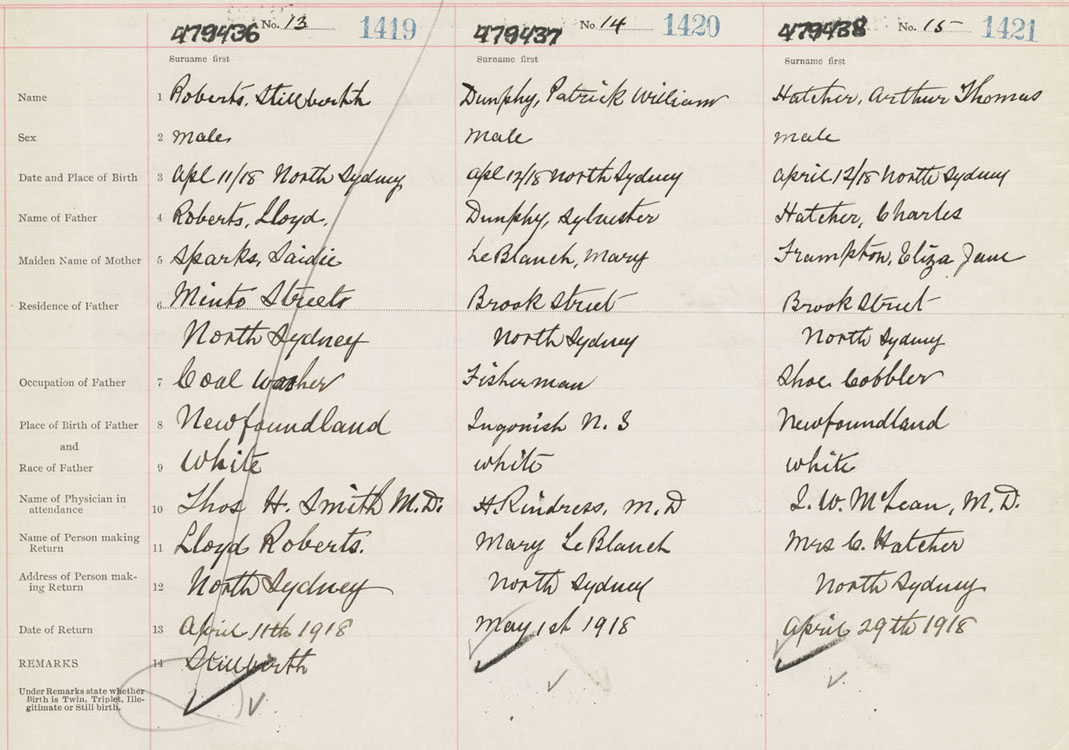 479436 No. 13 1419 479437 No. 14 1420 479438 No. 15 1421
Surname first Surname first Surname first
Name 1 Roberts, Stillbirth Dunphy, Patrick William Hatcher, Arthur Thomas
Sex 2 male male male
Date and Place of Birth 3 Apl 11/18 North Sydney Apl 12/18 North Sydney April 12/18 North Sydney
Name of Father 4 Roberts, Lloyd. Dunphy, Sylvester Hatcher, Charles
Maiden Name of Mother 5 Sparks, Saidie LeBlanch, Mary Frampton, Eliza Jane
Residence of Father 6 Minto Street Brook Street Brook Street
North Sydney North Sydney North Sydney
Occupation of Father 7 Coal washer Fisherman Shoe Cobbler
Place of Birth of Father 8 Newfoundland Ingonish N. S Newfoundland
and
Race of Father 9 White white white
Name of Physician in
attendance 10 Thos H. Smith M.D. H. Rindress, M.D L. W. McLean, M.D.
Name of Person making
Return 11 Lloyd Roberts. Mary LeBlanch Mrs C. Hatcher
Address of Person mak-
ing Return 12 North Sydney North Sydney North Sydney
Date of Return 13 April 11th 1918 May 1st 1918 April 29th 1918
REMARKS 14 Stillbirth
Under Remarks state whether
Birth is Twin, Triplet, Ille-
gitimate or Still birth.